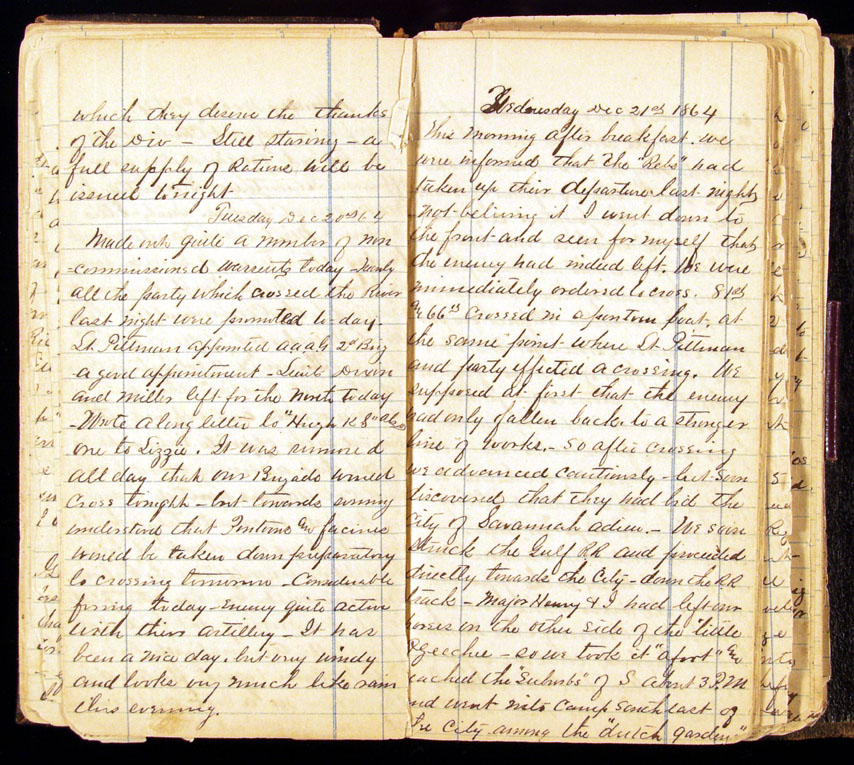 which they deserve the thanks
of the Div - Still starving - a
full supply of Rations will be
issued tonight
Tuesday Dec 20th 64
Made out quite a number of non
-commissioned warrents today - Nearly
all the party which crossed the River
last night were promoted to-day.
Lt. Pittman appointed a a a G 2d Brig
- a good appointment - Lieuts Dixon
and Miller left for the North today
- Wrote a long letter to "Hugh K 8" also
one to Lizzie. It was rumored
all day that our Brigade would
cross tonight - but towards evening
understood that Pontoons &c facines
would be taken down preparatory
to crossing tomorrow - Considerable
firing today - Enemy quite active
with their artillery - It has
been a nice day, but very windy
and looks very much like rain
this evening.
Wednesday Dec 21st 1864
This morning after breakfast. we
were informed that the "Rebs" had
taken up their departure last night,
-not beliving it I went down to
the front and seen for myself that
the enemy had indeed left. We were
immediately ordered to cross. 81st
& 66th crossed in a pontoon boat, at
the same point where Lt. Pittman
and party effected a crossing. We
supposed at first that the enemy
had only fallen back to a stronger
line of works. - So after crossing
we advanced cautiously - but soon
discovered that they had bid the
City of Savannah adieu. - We soon
struck the Gulf RR and proceeded
directly towards the City - down the RR
track - Major Henry & I had left our
horses on the other side of the little
Ogeechee - so we took it "afoot" &c
reached the "Suburbs" of S about 3 P.M
and went into Camp South east of
the City among the "dutch garden"